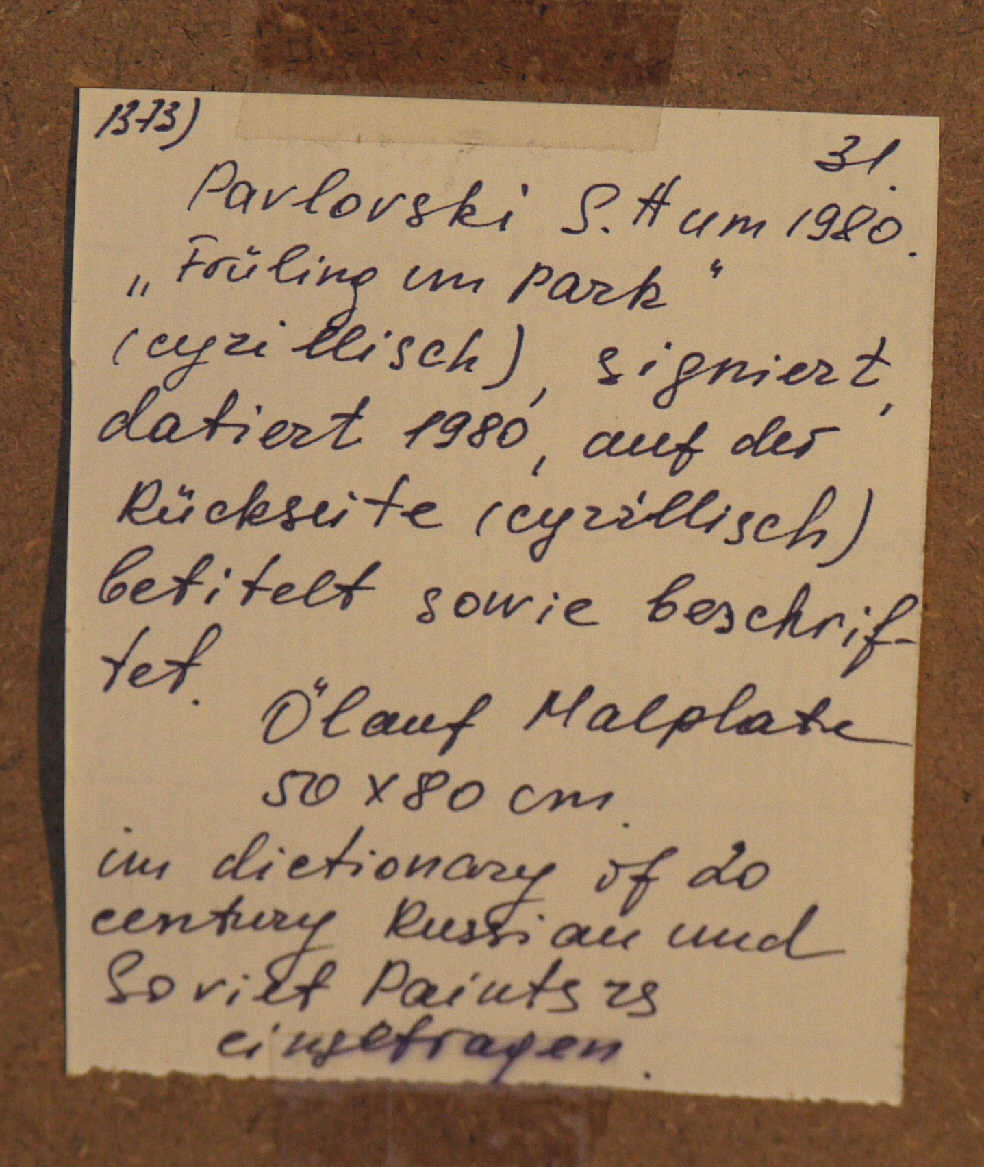 1373)
31.
Pavlovski S. Hum 1980.
„Früling im Park“
(cyrillisch), signiert,
datiert 1980, auf der
Rückseite (cyrillisch)
betitelt sowie beschrif-
tet.
Öl auf Malplate
50 x 80 cm.
im dictionary of 20
century Russian und
Soviet Painters
eingetragen.